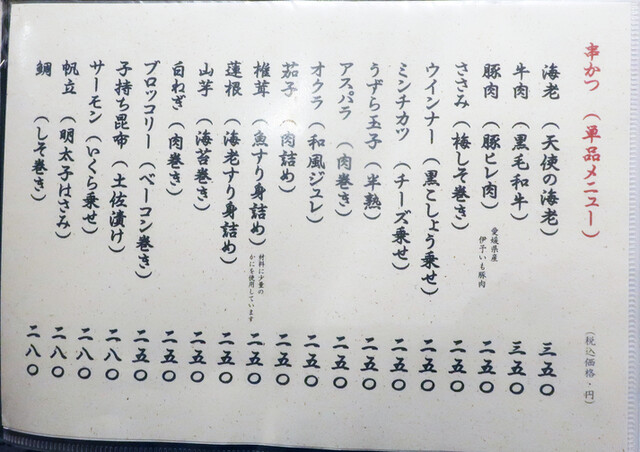 串かつ （単品メニュー）
（税込価格・円）
海老 （天使の海老） 三五〇
牛肉 （黒毛和牛） 三五〇
豚肉 （豚ヒレ肉） 愛媛県産 伊予いも豚肉 二五〇
ささみ （梅しそ巻き） 二五〇
ウインナー （黒こしょう乗せ） 二五〇
ミンチカツ （チーズ乗せ） 二五〇
うずら玉子 （半熟） 二五〇
アスパラ （肉巻き） 二五〇
オクラ （和風ジュレ） 二五〇
茄子 （肉詰め） 二五〇
椎茸 （魚すり身詰め） 材料に少量の かにを使用しています 二五〇
蓮根 （海老すり身詰め） 二五〇
山芋 （海苔巻き） 二五〇
白ねぎ （肉巻き） 二五〇
ブロッコリー （ベーコン巻き） 二五〇
子持ち昆布 （土佐漬け） 二八〇
サーモン （いくら乗せ） 二八〇
帆立 （明太子はさみ） 二八〇
鯛 （しそ巻き） 二八〇